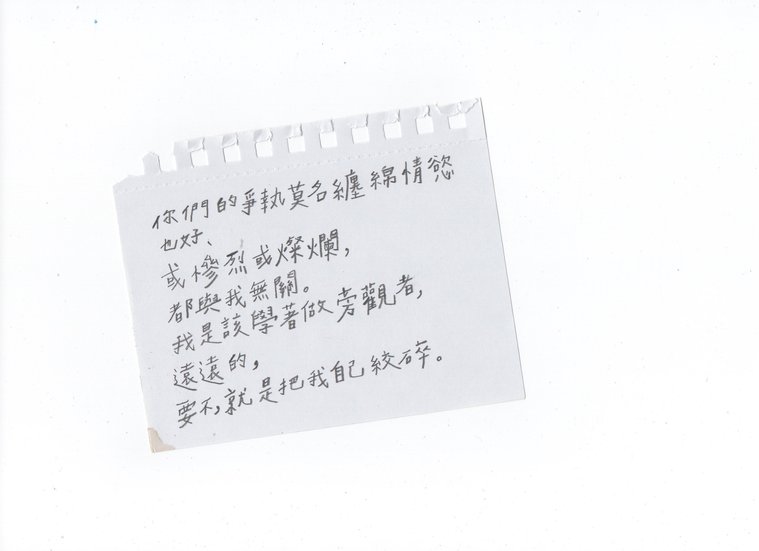 你們的爭執莫名纏綿情慾
也好、
或慘烈或燦爛，
都與我無關。
我是該學著做旁觀者，
遠遠的，
要不，就是把我自己絞碎。